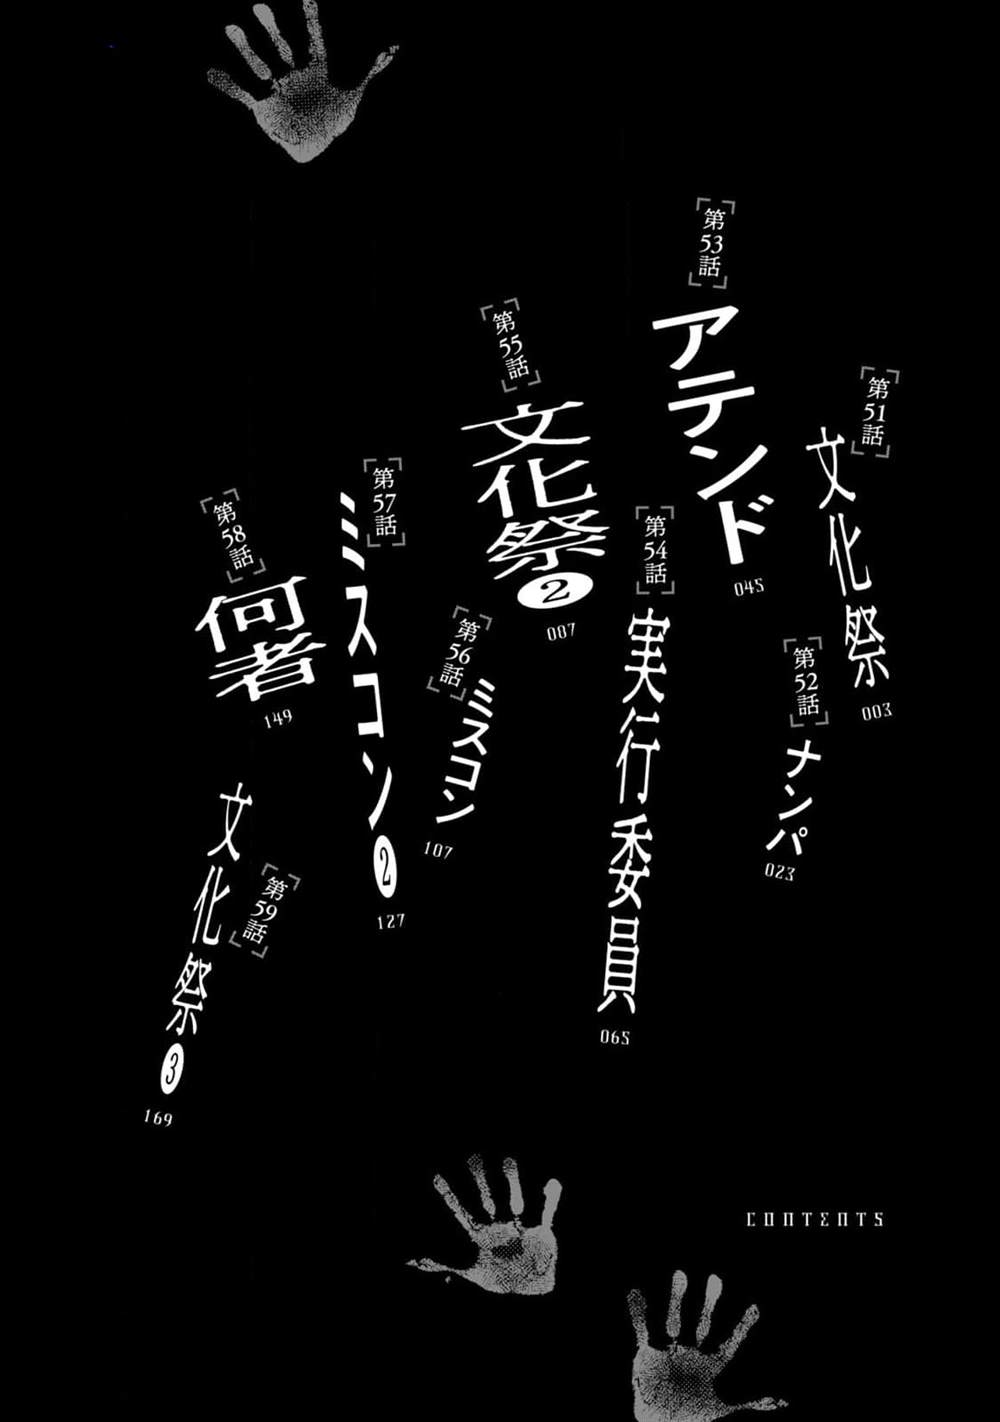 第51話
文化祭
003
第52話
ナンパ
023
第53話
アテンド
045
第54話
実行委員
065
第55話
文化祭②
087
第56話
ミスコン
107
第57話
ミスコン②
127
第58話
何者
149
第59話
文化祭③
169
CONTENTS